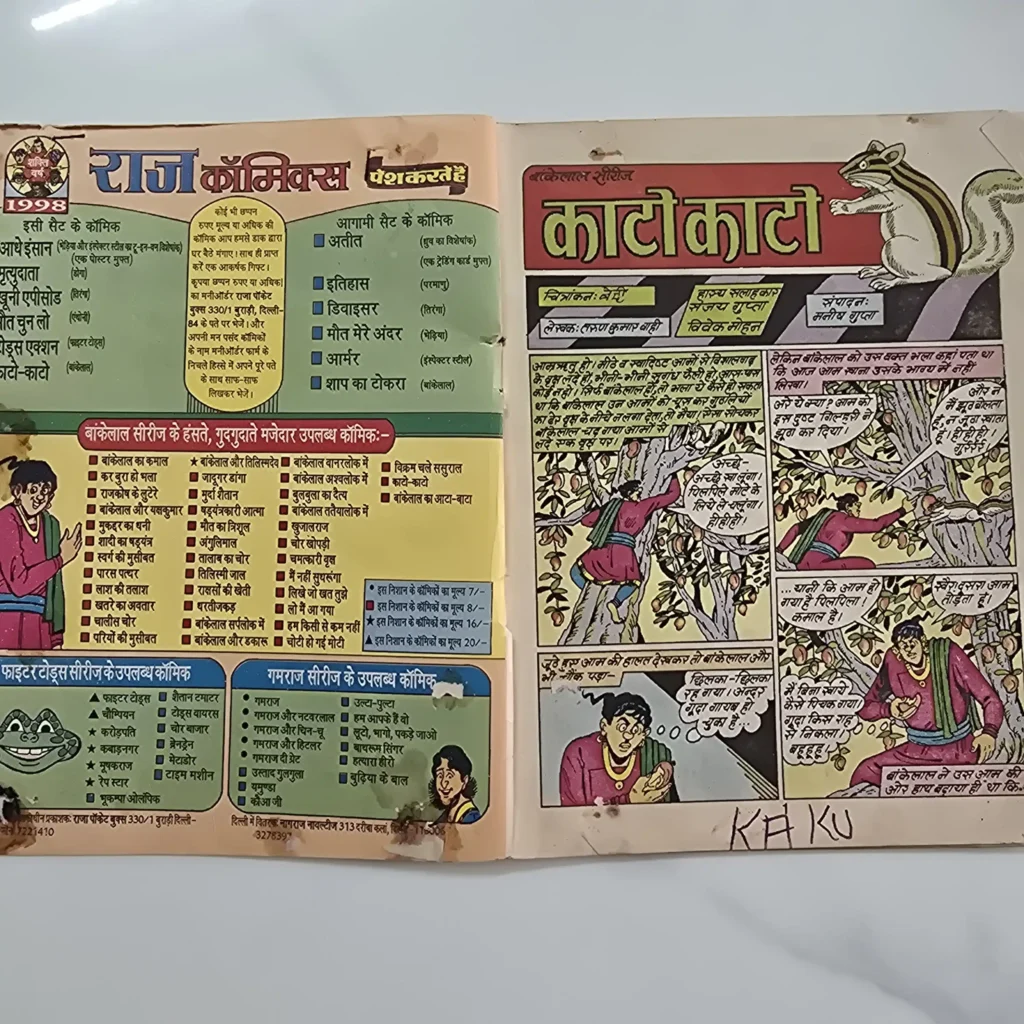 शक्ति वर्ष
1998
राज कॉमिक्स पेश करते हैं
इसी सैट के कॉमिक
आधे इंसान (भेड़िया और इंस्पेक्टर स्टील का टू-इन-वन विशेषांक)
(एक पोस्टर मुफ्त)
मृत्युदाता (डोगा)
खूनी एपीसोड (तिरंगा)
मौत चुन लो (एंथोनी)
टोड्स एक्शन (फाइटर टोड्स)
काटो-काटो (बांकेलाल)
कोई भी छप्पन
रुपए मूल्य या अधिक की
कॉमिक आप हमसे डाक द्वारा
घर बैठे मंगाएं। साथ ही प्राप्त
करें एक आकर्षक गिफ्ट।
कृपया छप्पन रुपए या अधिक
का मनीऑर्डर राजा पॉकेट
बुक्स 330/1 बुराड़ी, दिल्ली-
84 के पते पर भेजें। और
अपनी मन पसंद कॉमिकों
के नाम मनीऑर्डर फार्म के
निचले हिस्से में अपने पूरे पते
के साथ साफ-साफ
लिखकर भेजें।
आगामी सैट के कॉमिक
अतीत (ध्रुव का विशेषांक)
(एक ट्रेडिंग कार्ड मुफ्त)
इतिहास (परमाणु)
डिवाइसर (तिरंगा)
मौत मेरे अंदर (भेड़िया)
आर्मर (इंस्पेक्टर स्टील)
शाप का टोकरा (बांकेलाल)
बांकेलाल सीरीज के हंसते, गुदगुदाते मजेदार उपलब्ध कॉमिक:-
■ बांकेलाल का कमाल
■ कर बुरा हो भला
■ राजकोष के लुटेरे
■ बांकेलाल और यक्षकुमार
■ मुकद्दर का धनी
■ शादी का षड्यंत्र
■ स्वर्ग की मुसीबत
■ पारस पत्थर
■ लाश की तलाश
■ खतरे का अवतार
■ चालीस चोर
■ परियों की मुसीबत
★ बांकेलाल और तिलिस्मदेव
■ जादूगर डांगा
■ मुर्दा शैतान
■ षड्यंत्रकारी आत्मा
■ मौत का त्रिशूल
■ अंगुलिमाल
■ तालाब का चोर
■ तिलिस्मी जाल
■ राक्षसों की खेती
■ धरतीजकड़
■ बांकेलाल सर्पलोक में
■ बांकेलाल और डकारू
■ बांकेलाल वानरलोक में
■ बांकेलाल अश्वलोक में
■ बुलबुला का दैत्य
■ बांकेलाल ततैयालोक में
■ खुजालराज
■ चोर खोपड़ी
■ चमत्कारी वृक्ष
■ मैं नहीं सुधरूंगा
■ लिखे जो खत तुझे
■ लो मैं आ गया
■ हम किसी से कम नहीं
■ चोटी हो गई मोटी
■ विक्रम चले ससुराल
■ काटो-काटो
■ बांकेलाल का आटा-बाटा
● इस निशान के कॉमिकों का मूल्य 7/-
■ इस निशान के कॉमिकों का मूल्य 8/-
★ इस निशान के कॉमिकों का मूल्य 16/-
▲ इस निशान के कॉमिकों का मूल्य 20/-
फाइटर टोड्स सीरीज के उपलब्ध कॉमिक
▲ फाइटर टोड्स
▲ चैम्पियन
★ करोड़पति
★ कबाड़नगर
★ मूषकराज
★ रेप स्टार
■ भूकम्पा ओलंपिक
■ शैतान टमाटर
■ टोड्स वायरस
■ चोर बाजार
■ ब्रेनड्रेन
■ मेटाडोर
■ टाइम मशीन
गमराज सीरीज के उपलब्ध कॉमिक
● गमराज
● गमराज और नटवरलाल
● गमराज और चिन-चू
● गमराज और हिटलर
● गमराज दी ग्रेट
■ उस्ताद गुलगुला
■ यमुण्डा
■ कौआ जी
■ उल्टा-पुल्टा
■ हम आपके हैं वो
■ लूटो, भागो, पकड़े जाओ
■ बाथरूम सिंगर
■ हत्यारा हीरो
■ बुढ़िया के बाल
प्रकाशक: राजा पॉकेट बुक्स 330/1 बुराड़ी दिल्ली-
7221410
दिल्ली में वितरक: नागराज नावल्टीज 313 दरीबा कलां,
बांकेलाल सीरीज
काटो काटो
चित्रांकन: बेदी
लेखक: तरुण कुमार वाही
हास्य सलाहकार
संजय गुप्ता
विवेक मोहन
संपादन:
मनीष गुप्ता
आमऋतु हो। मीठे व स्वादिष्ट आमों से विशालबाग
के वृक्ष लदे हों, भीनी-भीनी सुगंध फैली हो, आस-पास
कोई न हो। सिर्फ बांकेलाल हो, तो भला ये कैसे हो सकता
था कि बांकेलाल उन आमों को चूसकर गुठलियों
का ढेर वृक्ष के नीचे न लगा देता, लो भैया। ऐसा सोचकर
बांकेलाल चढ़ गया आमों से
लदे एक वृक्ष पर।
अच्छे-
अच्छे खा लूंगा।
पिलपिले मोटे के
लिये ले चलूंगा।
ही ही ही!
लेकिन बांकेलाल को उस वक्त भला कहां पता था
कि आज आम खाना उसके भाग्य में नहीं
लिखा।
अरे ये क्या? आम को
इस दुष्ट गिलहरी ने
झूठा कर दिया!
और न
मैं झूठ बोलता
हूं, न झूठा खाता
हूं! ही ही ही!
गुर्रर्रर्र
जूठे हुए आम की हालत देखकर तो बांकेलाल और
भी चौंक पड़ा-
छिलका-छिलका
रह गया। अन्दर
गूदा गायब हो
चुका है...
...यानी कि आम हो
गया है पिलपिला!
कमाल है!
खैर! दूसरा आम
तोड़ता हूं!
मैं बिना खाये
कैसे पिचक गया।
गूदा किस राह
से निकला!
बूहूहूहू!
बांकेलाल ने उस आम की
ओर हाथ बढ़ाया ही था कि-
KAKU